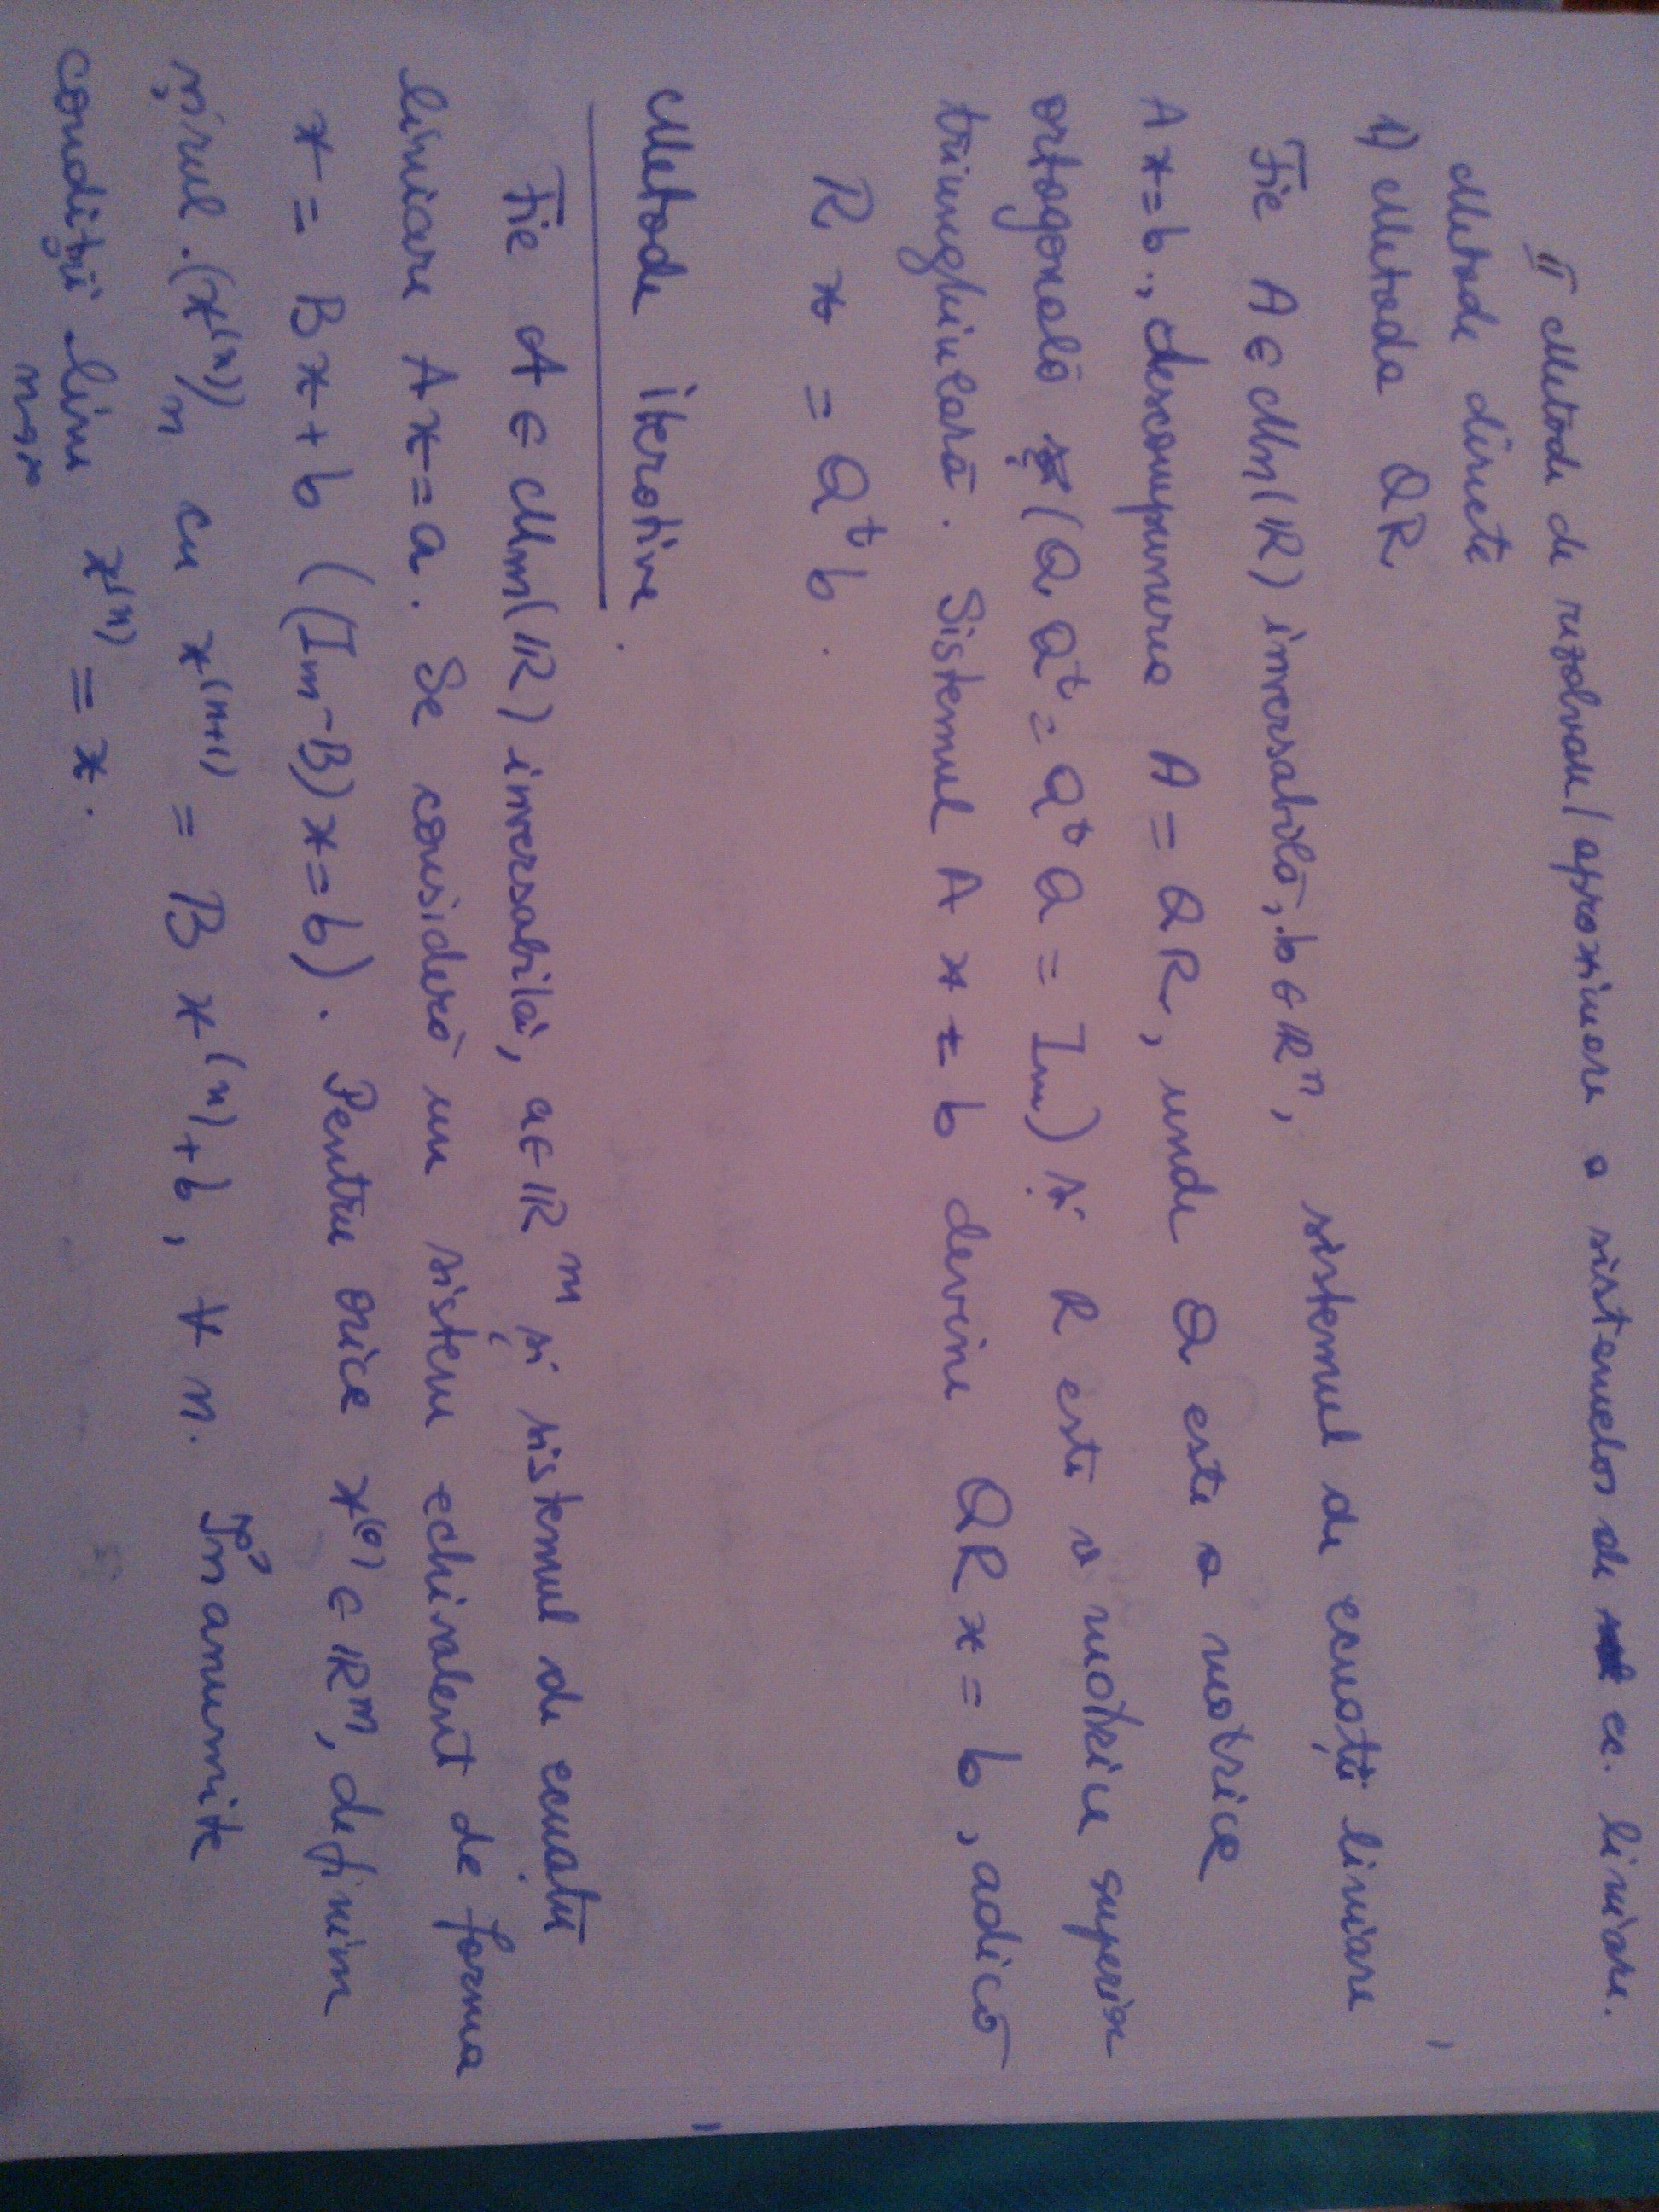 II Metode de rezolvare/aproximare a sistemelor de ec. liniare.
Metode directe
1) Metoda QR
Fie A ∈ Mn(ℝ) inversabilă, b ∈ ℝⁿ, sistemul de ecuații liniare
Ax=b, descompunerea A = QR, unde Q este o matrice
ortogonală (Q Qᵗ = Qᵗ Q = Im) și R este o matrice superior
triunghiulară. Sistemul Ax=b devine QRx = b, adică
Rx = Qᵗb.
Metode iterative.
Fie A ∈ Mm(ℝ) inversabilă, a ∈ ℝᵐ și sistemul de ecuații
liniare Ax=a. Se consideră un sistem echivalent de forma
x = Bx+b ((Im-B)x=b). Pentru orice x⁽⁰⁾ ∈ ℝᵐ, definim
șirul (x⁽ⁿ⁾)n cu x⁽ⁿ⁺¹⁾ = Bx⁽ⁿ⁾+b, ∀ n. În anumite
condiții lim x⁽ⁿ⁾ = x.
n→∞